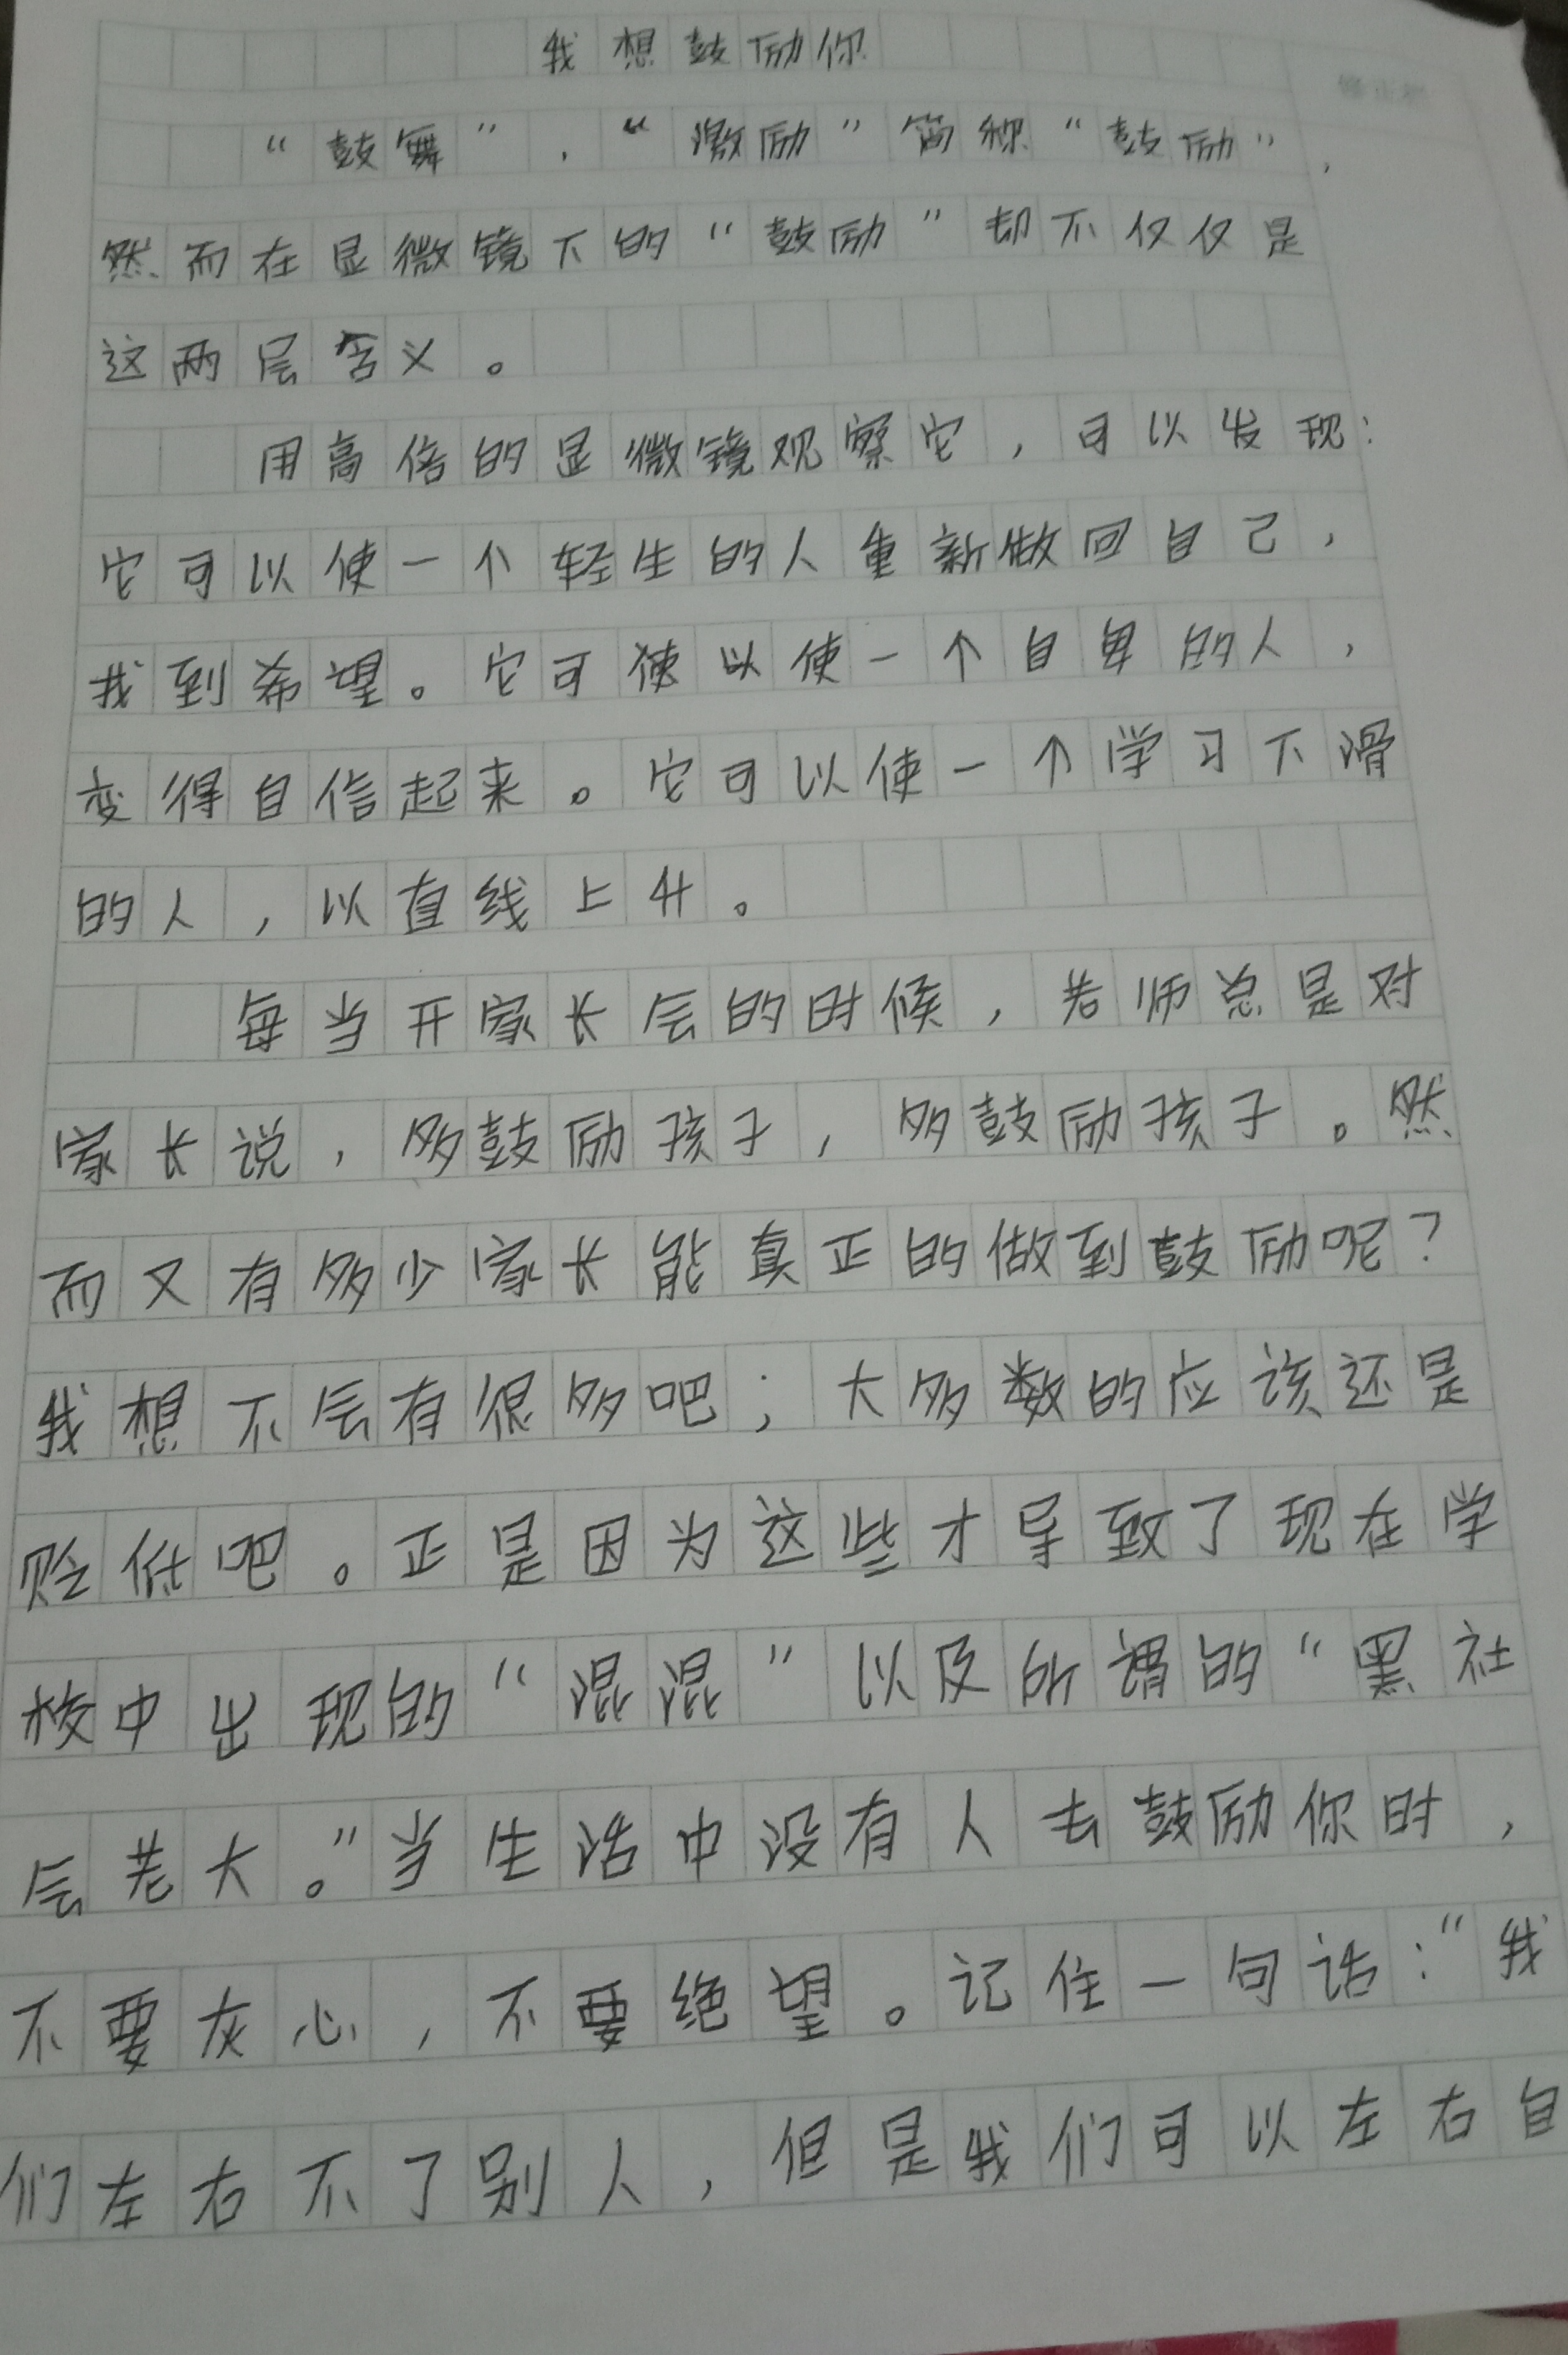 我想鼓励你
“鼓舞”，“激励”简称“鼓励”，
然而在显微镜下的“鼓励”却不仅仅是
这两层含义。
用高倍的显微镜观察它，可以发现：
它可以使一个轻生的人重新做回自己，
找到希望。它可使以使一个自卑的人，
变得自信起来。它可以使一个学习下滑
的人，以直线上升。
每当开家长会的时候，老师总是对
家长说，多鼓励孩子，多鼓励孩子。然
而又有多少家长能真正的做到鼓励呢？
我想不会有很多吧；大多数的应该还是
贬低吧。正是因为这些才导致了现在学
校中出现的“混混”以及所谓的“黑社
会老大。”当生活中没有人去鼓励你时，
不要灰心，不要绝望。记住一句话：“我
们左右不了别人，但是我们可以左右自